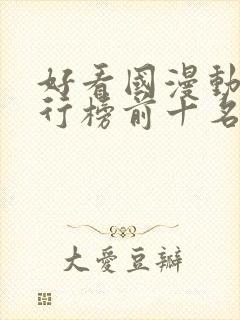 好看國漫動
行榜前十名
大愛豆瓣